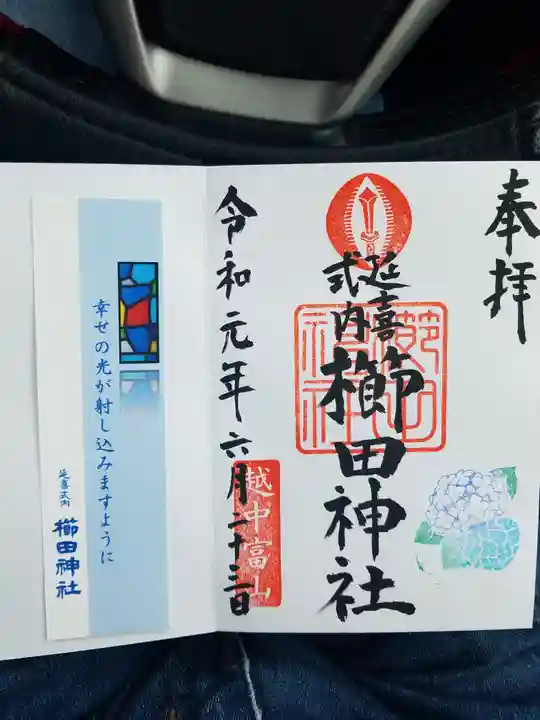 奉拝
延喜
式内
櫛田神社
櫛田
神社
越中富山
令和元年六月二十三日
幸せの光が射し込みますように
延喜式内
櫛田神社